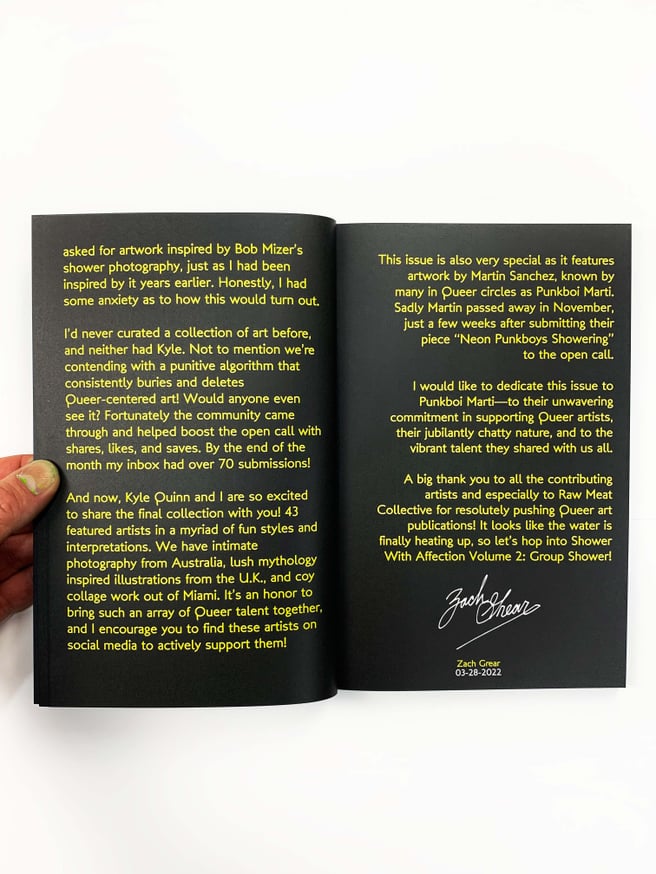 asked for artwork inspired by Bob Mizer's
shower photography, just as I had been
inspired by it years earlier. Honestly, I had
some anxiety as to how this would turn out.
I'd never curated a collection of art before,
and neither had Kyle. Not to mention we're
contending with a punitive algorithm that
consistently buries and deletes
Queer-centered art! Would anyone even
see it? Fortunately the community came
through and helped boost the open call with
shares, likes, and saves. By the end of the
month my inbox had over 70 submissions!
And now, Kyle Quinn and I are so excited
to share the final collection with you! 43
featured artists in a myriad of fun styles and
interpretations. We have intimate
photography from Australia, lush mythology
inspired illustrations from the U.K., and coy
collage work out of Miami. It's an honor to
bring such an array of Queer talent together,
and I encourage you to find these artists on
social media to actively support them!
This issue is also very special as it features
artwork by Martin Sanchez, known by
many in Queer circles as Punkboi Marti.
Sadly Martin passed away in November,
just a few weeks after submitting their
piece "Neon Punkboys Showering"
to the open call.
I would like to dedicate this issue to
Punkboi Marti—to their unwavering
commitment in supporting Queer artists,
their jubilantly chatty nature, and to the
vibrant talent they shared with us all.
A big thank you to all the contributing
artists and especially to Raw Meat
Collective for resolutely pushing Queer art
publications! It looks like the water is
finally heating up, so let's hop into Shower
With Affection Volume 2: Group Shower!
Zach Grear
Zach Grear
03-28-2022